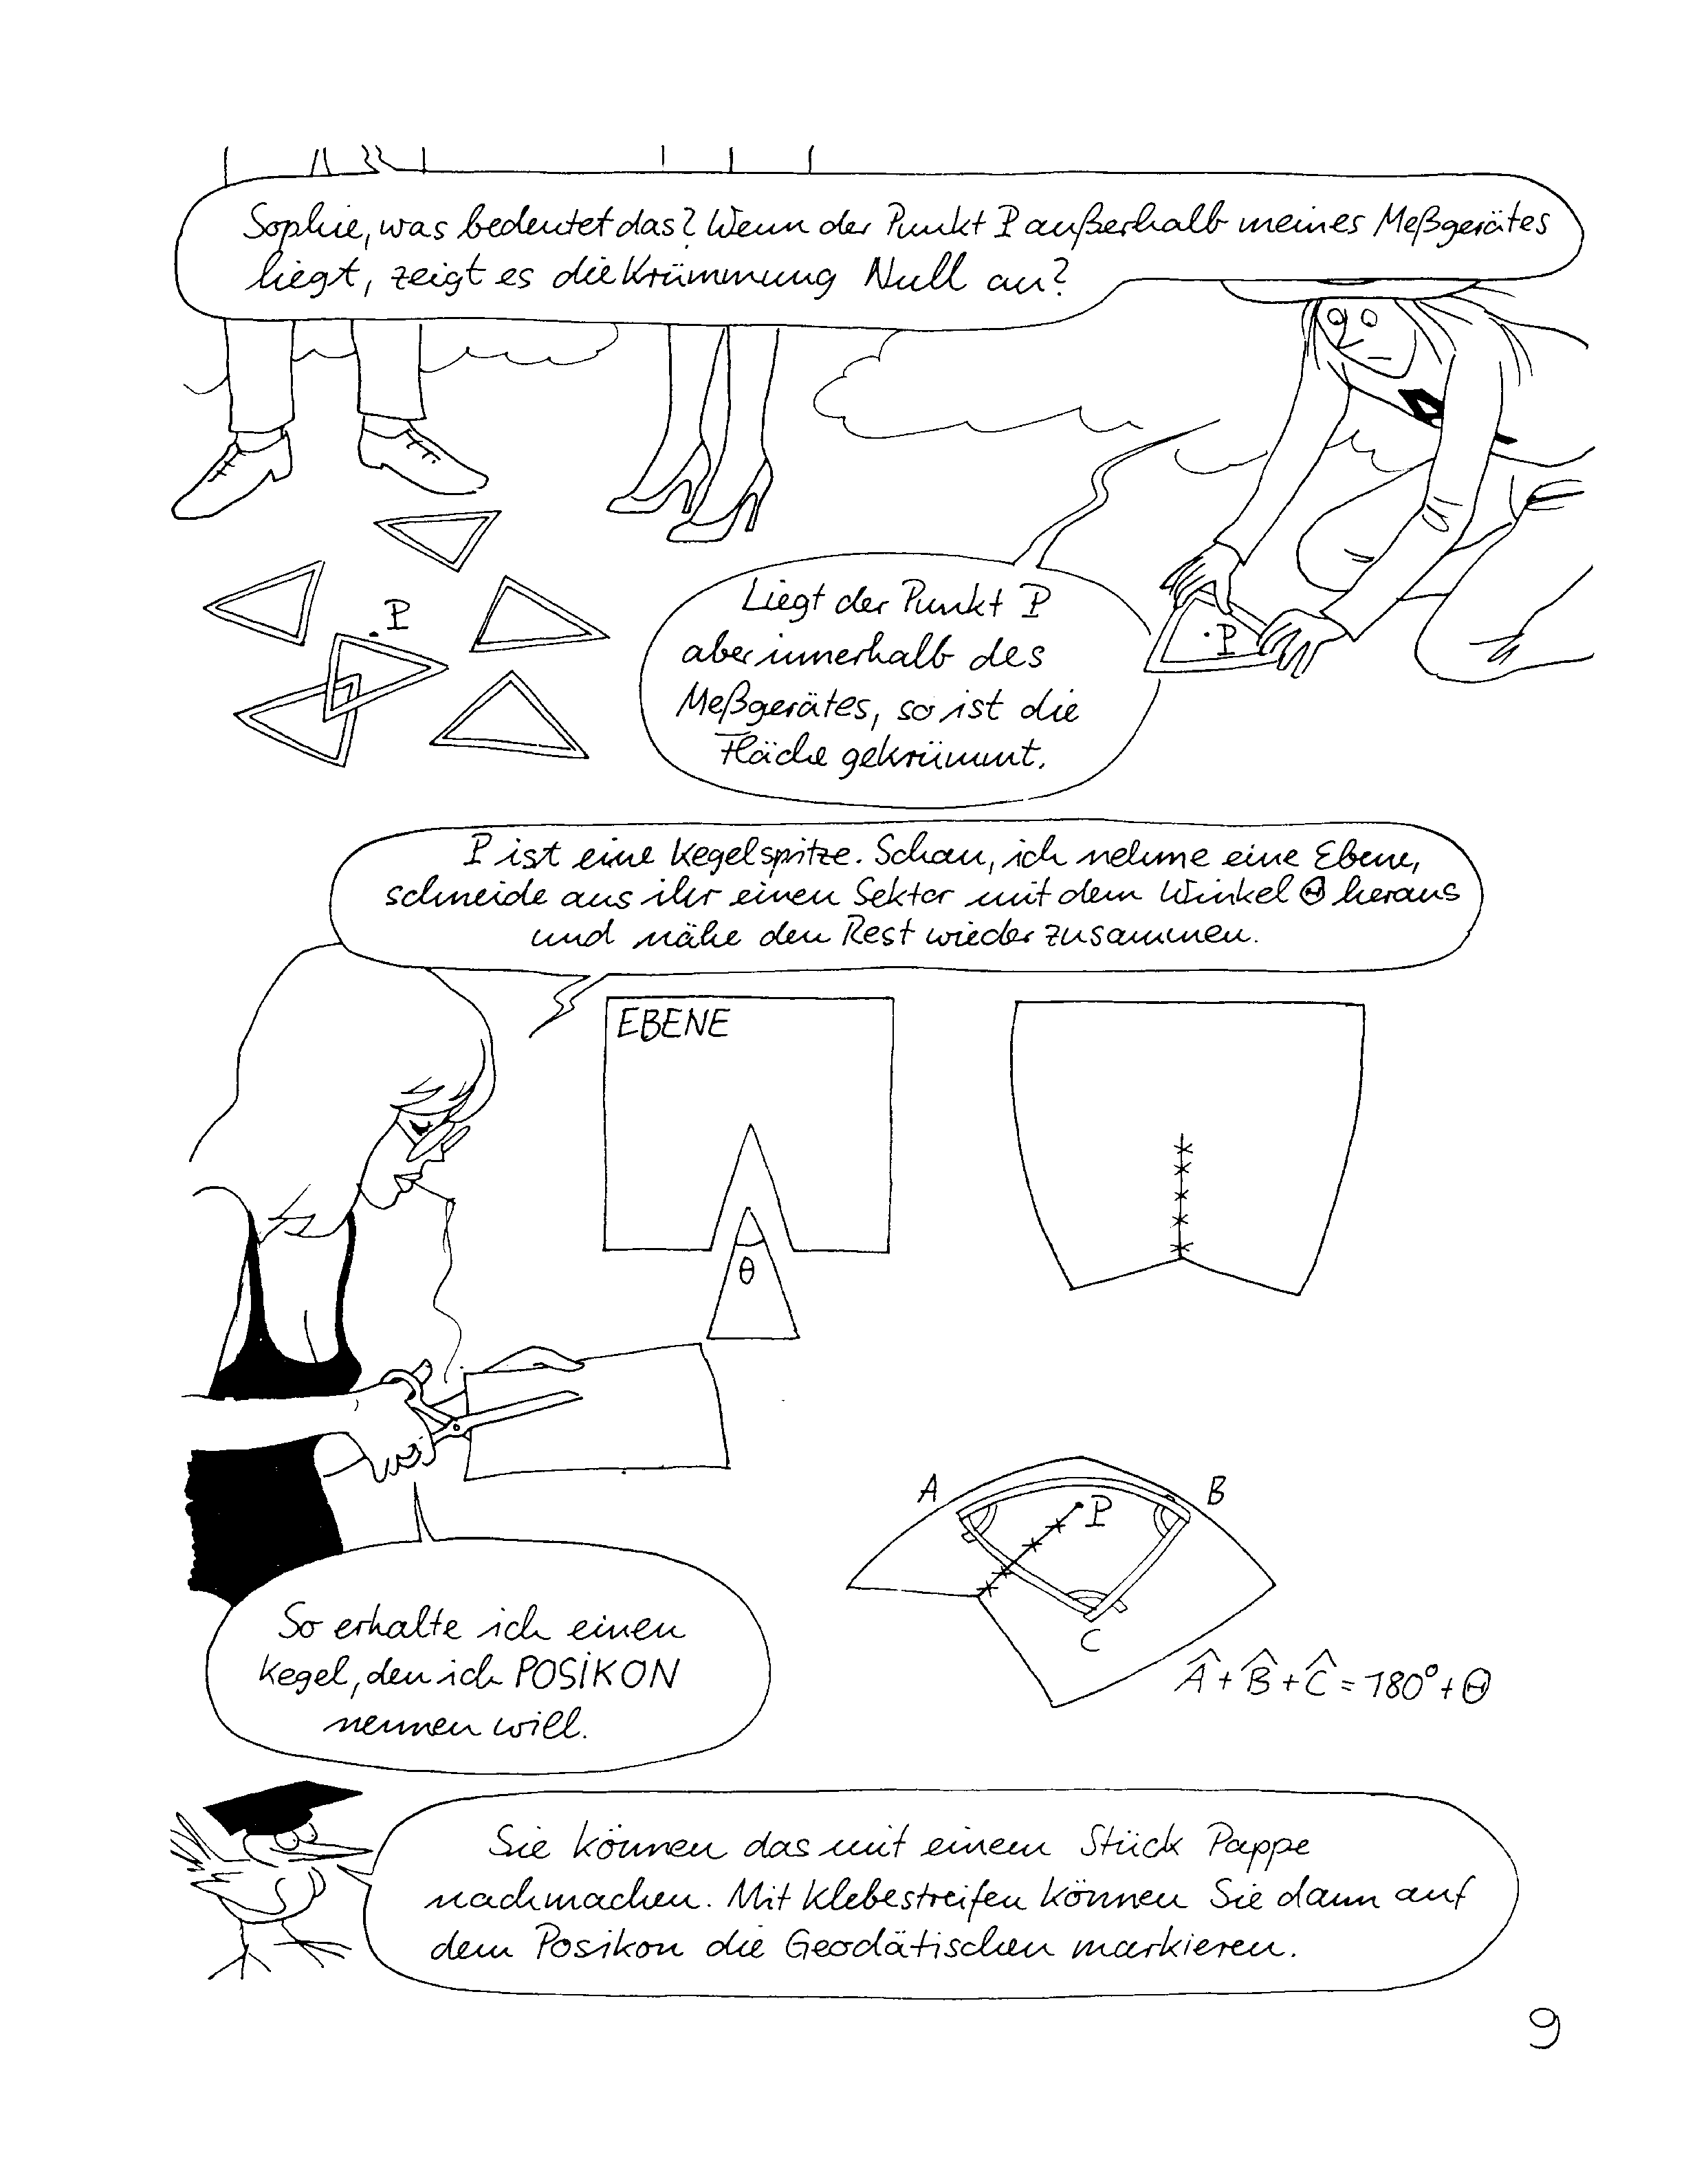 Sophie, was bedeutet das? Wenn der Punkt P außerhalb meines Meßgerätes
liegt, zeigt es die Krümmung Null an?
P
Liegt der Punkt P
aber innerhalb des
Meßgerätes, so ist die
Fläche gekrümmt.
P
P ist eine Kegelspitze. Schau, ich nehme eine Ebene,
schneide aus ihr einen Sektor mit dem Winkel Θ heraus
und nähe den Rest wieder zusammen.
EBENE
θ
A
B
P
C
Â + B̂ + Ĉ = 180° + Θ
So erhalte ich einen
Kegel, den ich POSIKON
nennen will.
Sie können das mit einem Stück Pappe
nachmachen. Mit Klebestreifen können Sie dann auf
dem Posikon die Geodätischen markieren.
9